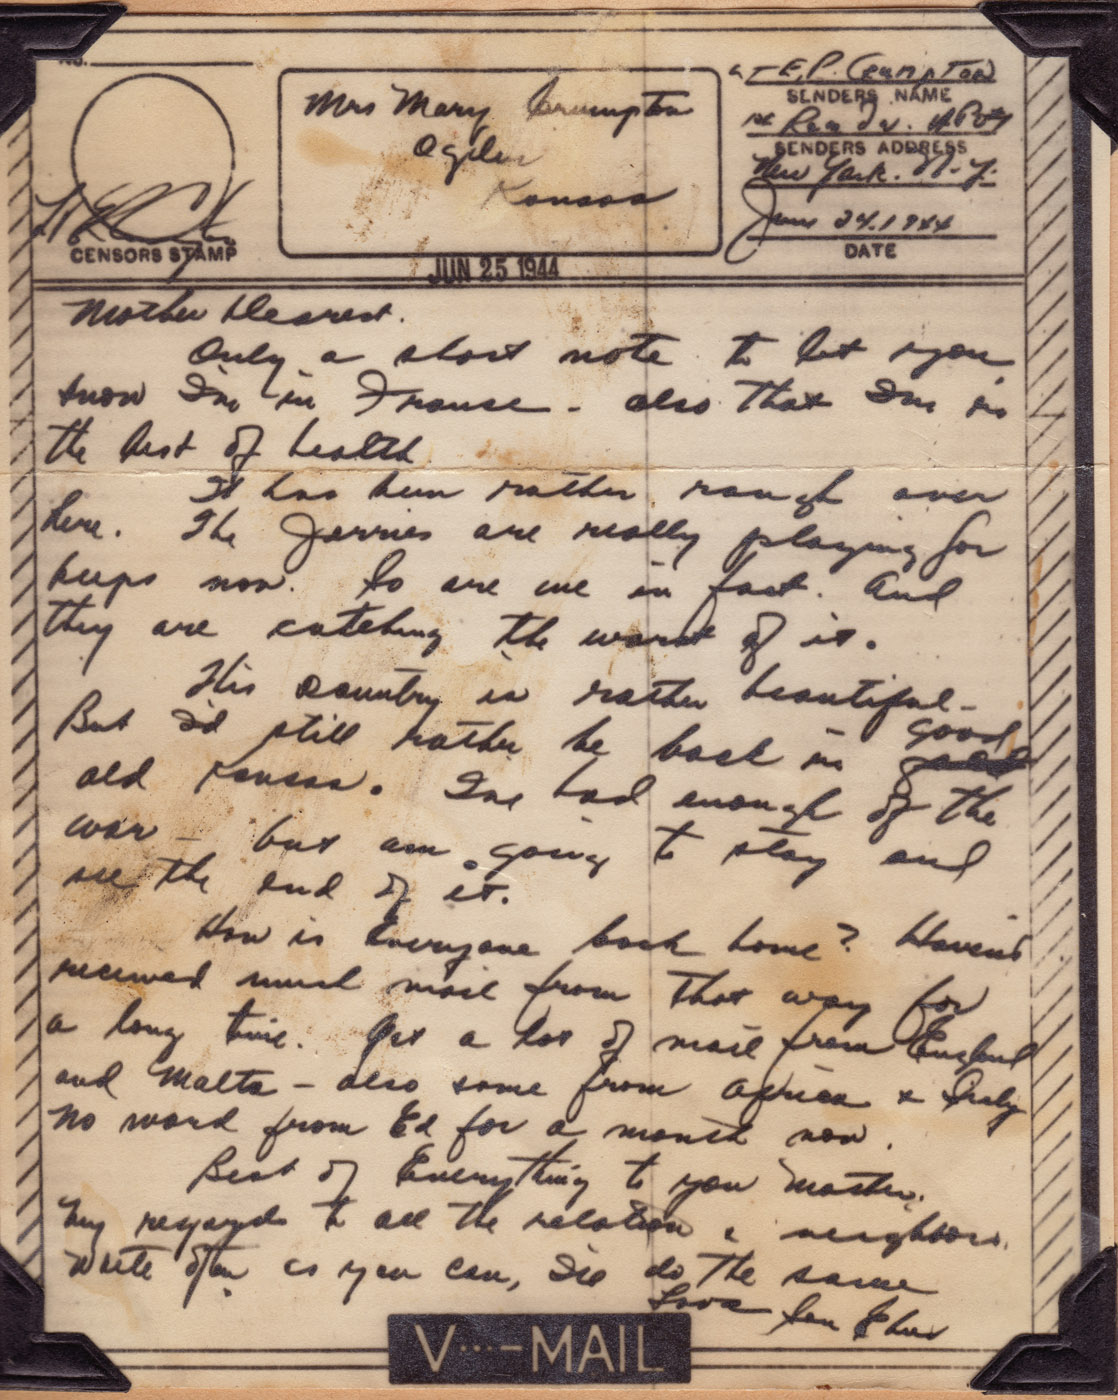 No.
Mrs Mary Crumpton
Ogden
Kansas
CENSORS STAMP
Lt E.P. Crumpton
SENDERS NAME
SENDERS ADDRESS
New York. N.Y.
June 24. 1944
DATE
JUN 25 1944
Mother Dearest.
Only a short note to let you
know I'm in France - also that I'm in
the best of health
It has been rather rough over
here. The Jerries are really playing for
keeps now. So are we in fact. And
they are catching the worst of it.
This country is rather beautiful -
But I'd still rather be back in good
old Kansas. I've had enough of the
war - but am going to stay and
see the end of it.
How is Everyone back home? Haven't
received much mail from that way for
a long time. Get a lot of mail from England
and Malta - also some from Africa & Italy
No word from Ed for a month now.
Best of Everything to you Mother.
My regards to all the relation & neighbors.
Write often as you can, I'll do the same
Love Son
V···-MAIL